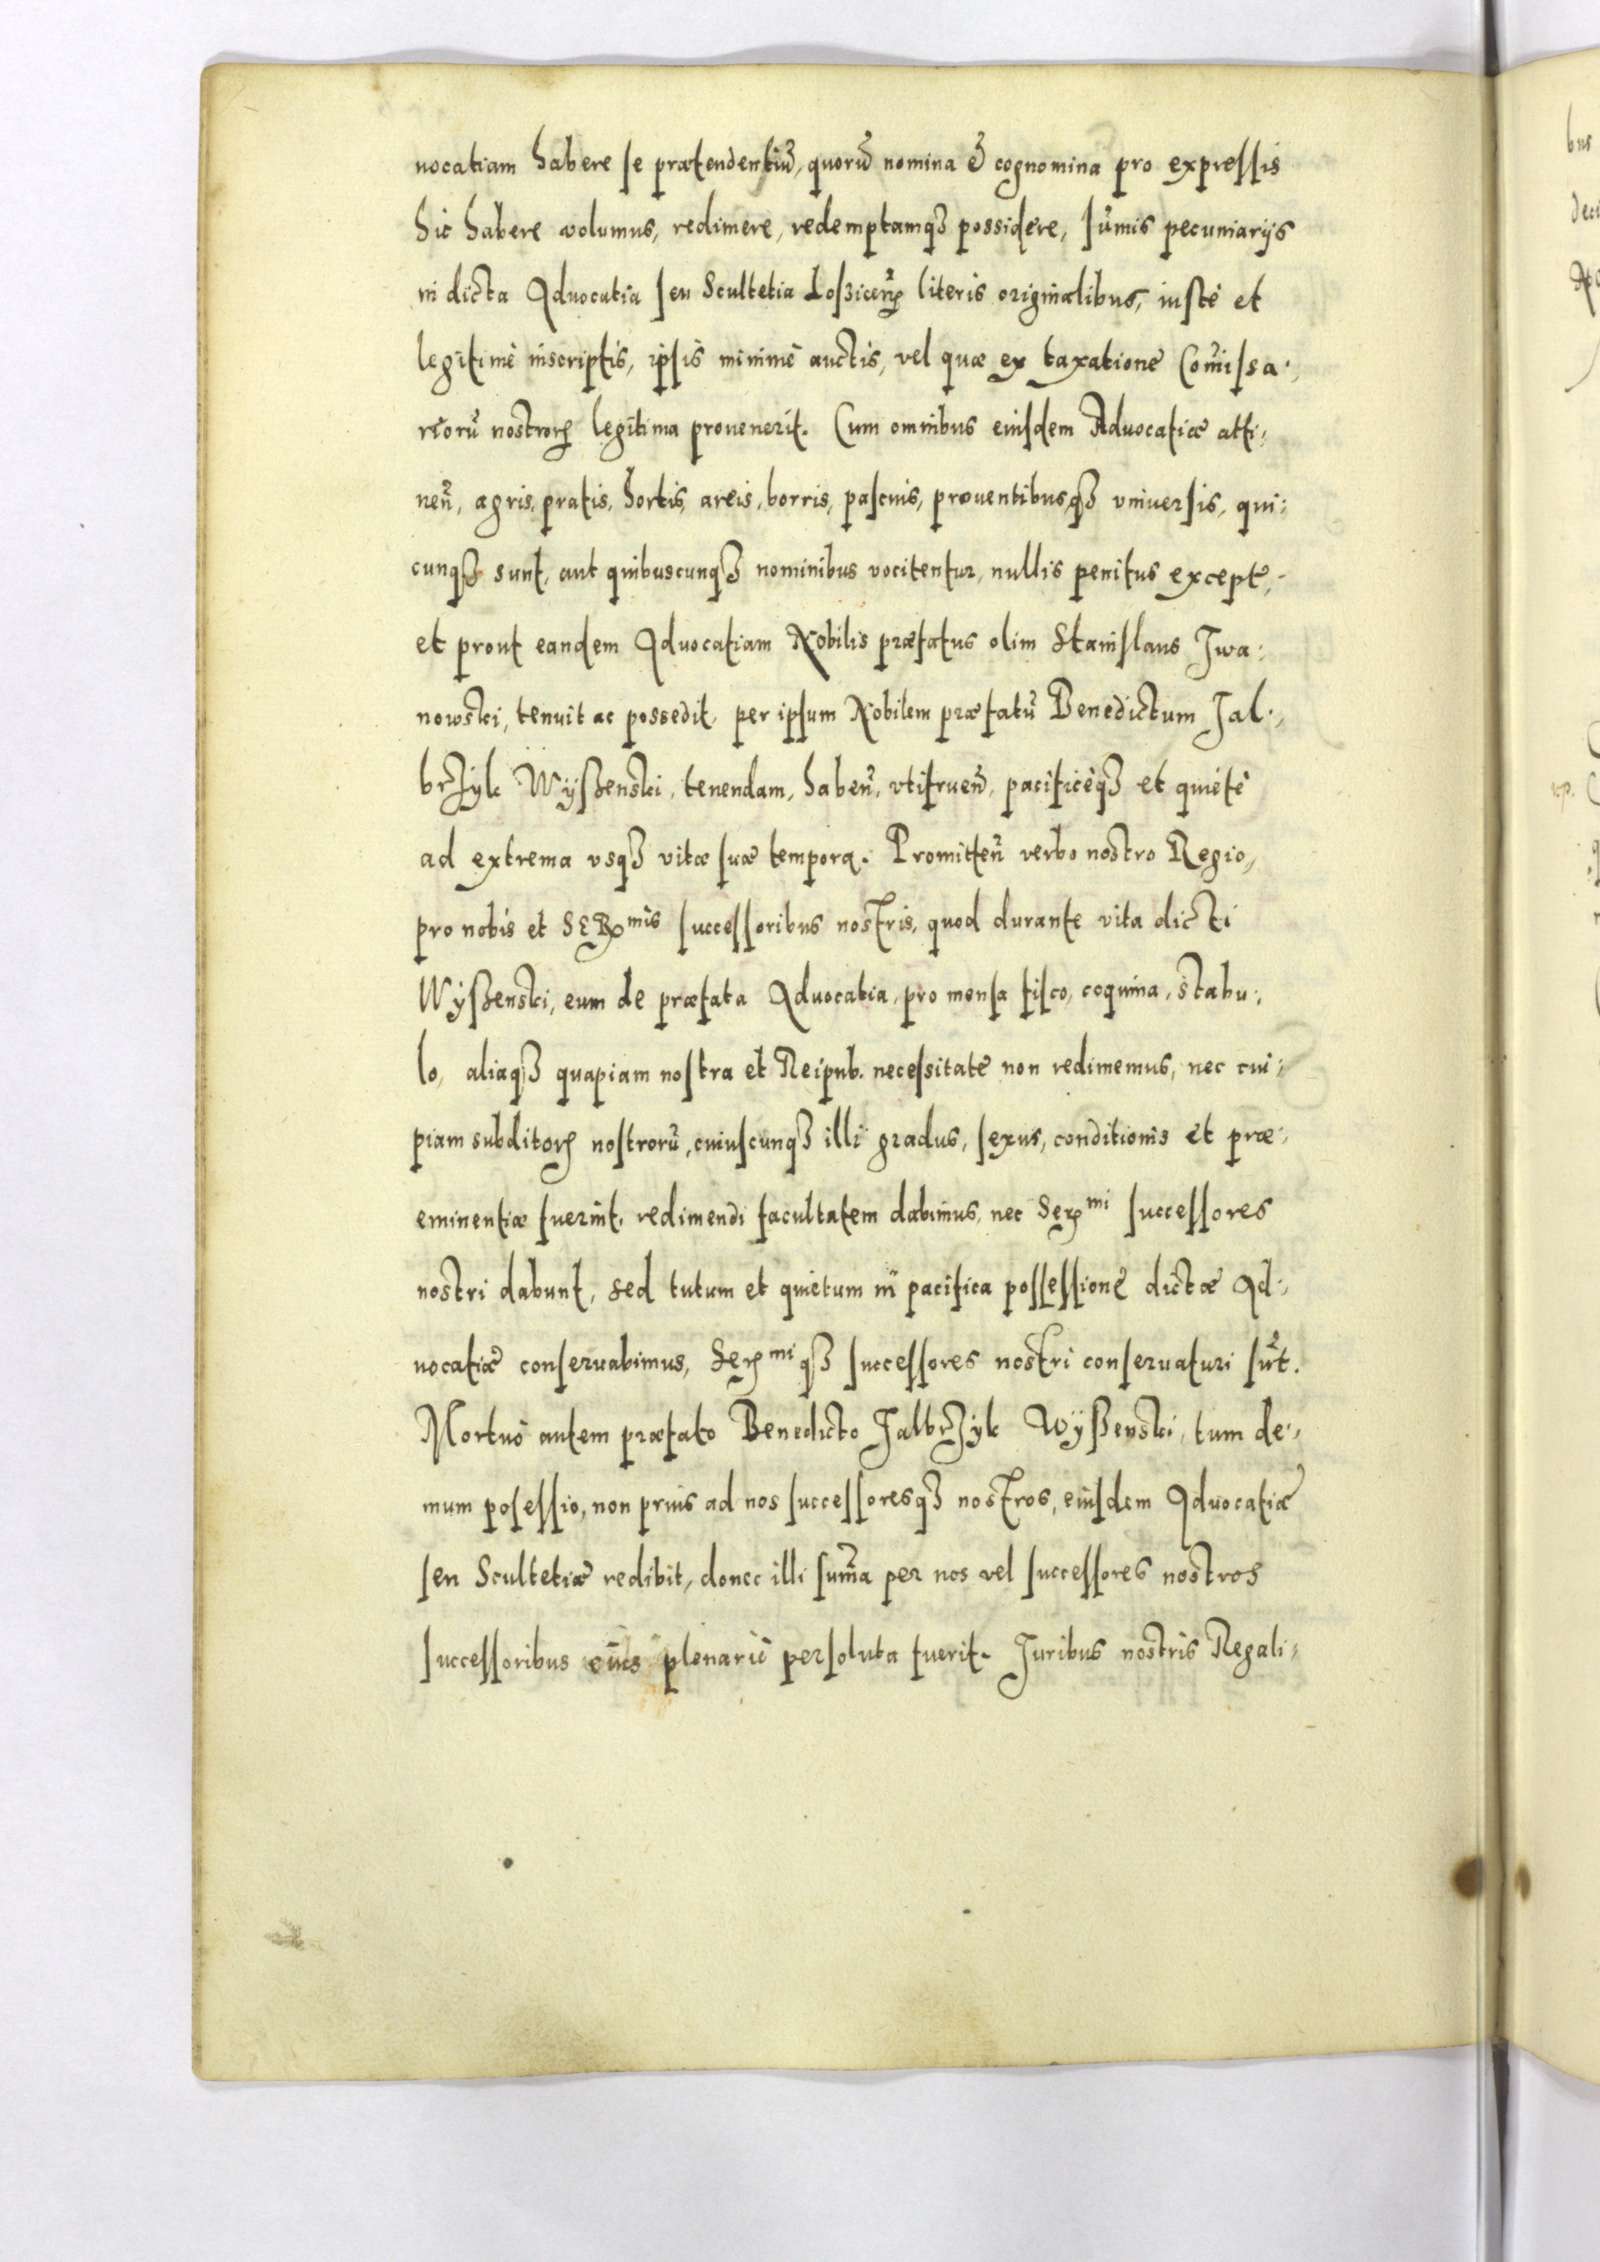 uocatiam habere se prætendentiũ, quorũ nomina & cognomina pro expressis
hic habere volumus, redimere, redemptamq; possidere, sũmis pecuniarijs
in dicta Aduocatia seu Scultetia Losicen̄ literis originalibus, iustè et
legitimè inscriptis, ipsis minimè auctis, vel quæ ex taxatione Com̃issa:,
rioru᷈ nostrorꝝ legitima prouenerit. Cum omnibus eiusdem Aduocatiæ atti:,
neñ, agris, pratis, hortis, areis, borris, pascuis, prouentibusq; vniuersis, qui:
cunq; sunt, aut quibuscunq; nominibus vocitentur, nullis penitus except,
et prout eandem Aduocatiam Nobilis præfatus olim Stanislaus Iwa:
nowski, tenuit ac possedit, per ipsum Nobilem præfatũ Benedictum Jal:,
brzyk Wÿszenski, tenendam, habeñ, vtifrueñ, pacificèq; et quietè
ad extrema vsq; vitæ suæ tempora. Promitteñ verbo nostro Regio,
pro nobis et SERmis successoribus nostris, quod durante vita dicti
Wÿszenski, eum de præfata Aduocatia, pro mensa fisco, coquina, stabu:,
lo, aliaq; quapiam nostra et Reipub. necessitate non redimemus, nec cui:,
piam subditorꝝ nostrorũ, cuiuscunq; illi gradus, sexus, conditionis et præ:,
eminentiæ fuerint, redimendi facultatem dabimus, nec Sermi successores
nostri dabunt, sed tutum et quietum in pacifica possessione dictæ Ad:,
uocatiæ conseruabimus, Sermiq; successores nostri conseruaturi sũt.
Mortuo autem præfato Benedicto Jalbrzyk Wÿszenski, tum de:,
mum posessio, non prius ad nos successoresq; nostros, eiusdem Aduocatiæ
seu Scultetiæ redibit, donec illi sum̃a per nos vel successores nostros
successoribus eius plenariè persoluta fuerit. Juribus nostris Regali:,